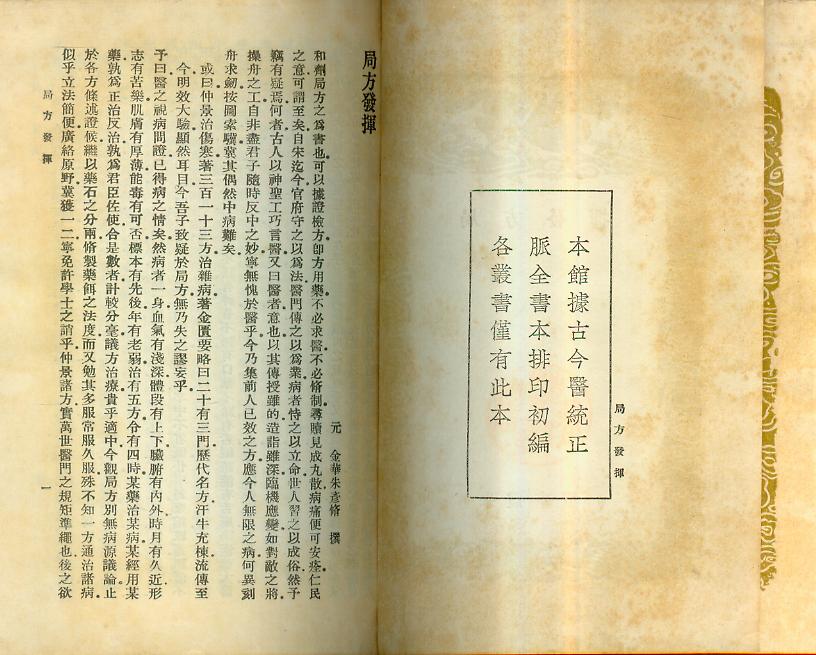 局方發揮
本館據古今醫統正
脈全書本排印初編
各叢書僅有此本
局方發揮
元 金華朱彥脩 撰
和劑局方之為書也可以據證檢方卽方用藥不必求醫不必脩制尋贖見成丸散病痛便可安痊仁民
之意可謂至矣自宋迄今官府守之以爲法醫門傳之以爲業病者恃之以立命世人習之以成俗然予
竊有疑焉何者古人以神聖工巧言醫又曰醫者意也以其傳授雖的造詣雖深臨機應變如對敵之將
操舟之工自非盡君子隨時反中之妙寧無愧於醫乎今乃集前人已效之方應今人無限之病何異刻
舟求劒按圖索驥冀其偶然中病難矣
或曰仲景治傷寒著三百一十三方治雜病著金匱要略曰二十有三門歷代名方汗牛充棟流傳至
今明效大驗顯然耳目今吾子致疑於局方無乃失之謬妄乎
予曰醫之視病問證已得病之情矣然病者一身血氣有淺深體段有上下臟腑有內外時月有久近形
志有苦樂肌膚有厚薄能毒有可否標本有先後年有老弱治有五方令有四時某藥治某病某經用某
藥孰爲正治反治孰爲君臣佐使合是數者計較分毫議方治療貴乎適中今觀局方別無病源議論止
於各方條述證候繼以藥石之分兩脩製藥餌之法度而又勉其多服常服久服殊不知一方通治諸病
似乎立法簡便廣絡原野冀獲一二寧免許學士之誚乎仲景諸方實萬世醫門之規矩準繩也後之欲
局方發揮
一